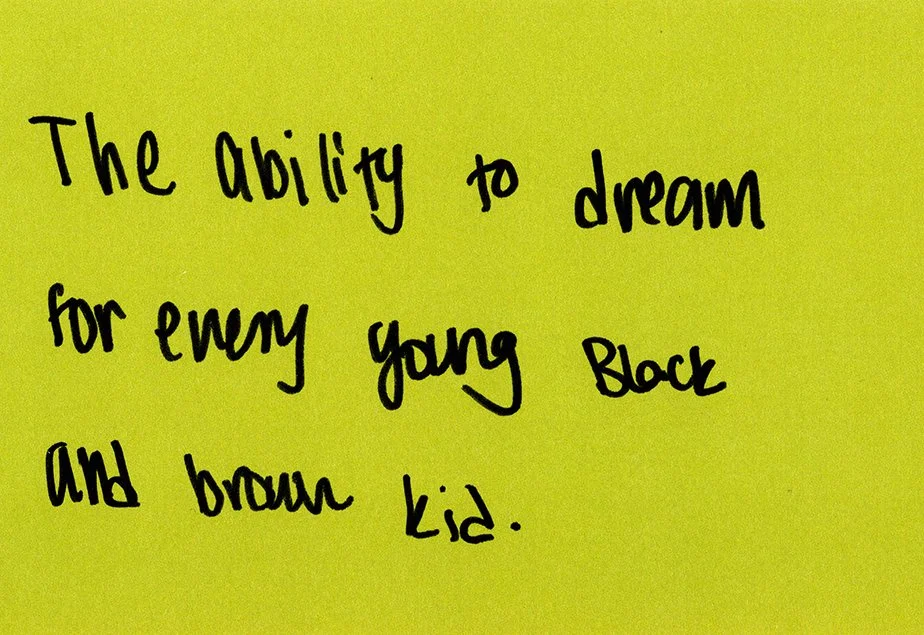 The ability to dream
for every young Black
and brown kid.